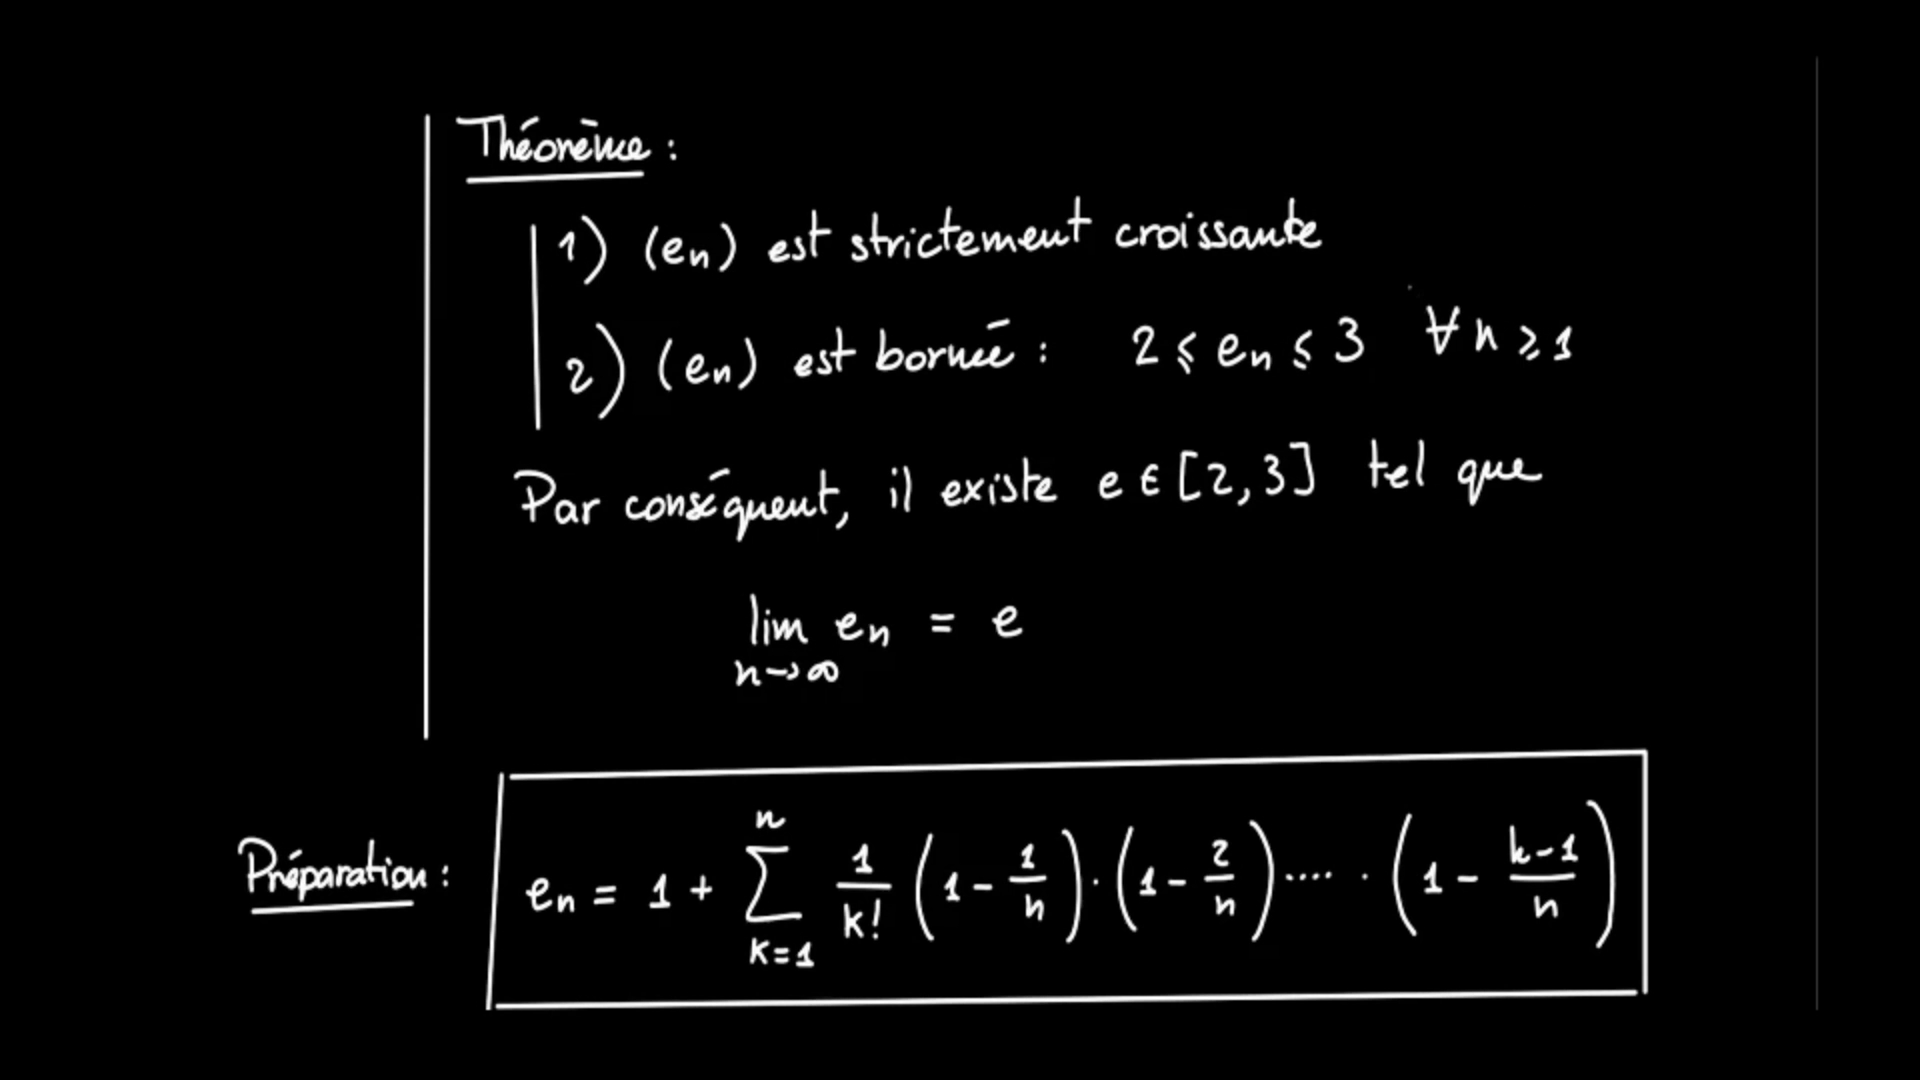 Théorème :
1) (eₙ) est strictement croissante
2) (eₙ) est bornée : 2 ⩽ eₙ ⩽ 3 ∀ n ⩾ 1
Par conséquent, il existe e ∈ [2, 3] tel que
lim eₙ = e
n→∞
Préparation : eₙ = 1 + ∑_{k=1}^{n} 1/k! (1 - 1/n) · (1 - 2/n) ···· · (1 - (k-1)/n)